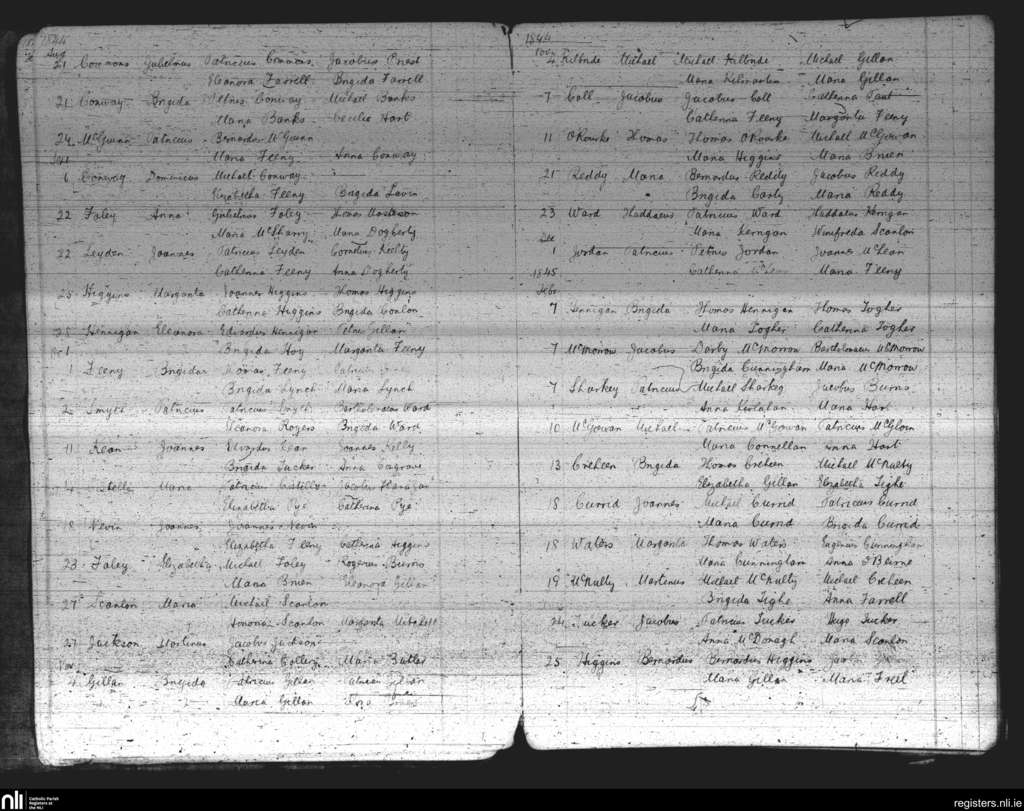 1844
Aug
21 Commons Gulielmus Patricius Commons Jacobus Priest
Eleanora Farrell Brigida Farrell
21 Conway Brigida Petrus Conway Michael Banks
Maria Banks Cecilia Hart
24 McGuinn Patricius Bernardus McGuinn
Maria Feeny Anna Conway
6 Conway Dominicus Michael Conway
Elizabetha Feeny Brigida Lavin
22 Foley Anna Gulielmus Foley Thomas
Maria McSharry Maria Dogherty
22 Leyden Joannes Patricius Leyden Cornelius Reilly
Catherina Feeny Anna Dogherty
25 Higgins Margarita Joannes Higgins Thomas Higgins
Catherina Higgins Brigida Conlon
25 Hennigan Eleanora Eduardus Hennigan Petrus Gillan
Brigida Hoy Margarita Feeny
1 Feeny Brigida Thomas Feeny
Brigida Lynch Maria Lynch
2 Smyth Patricius Patricius Smyth Bartholomaeus Ward
Eleanora Rogers Brigida Ward
11 Kean Joannes Edvardus Kean Joannes Kelly
Brigida Tucker Anna Cosgrave
Costello Maria Patricius Costello Jacobus Flanagan
Elizabetha Pye Catherina Pye
18 Nevin Joannes Joannes Nevin
Elizabetha Feeny Catherina Higgins
23 Foley Elizabetha Michael Foley Rogerus Burns
Maria Brien Eleanora Gillan
27 Scanlon Maria Michael Scanlon
Honoria Scanlon Margarita
27 Jackson Martinus Jacobus Jackson
Catherina Maria Butler
Nov
4 Gillan Brigida Patricius Gillan Gillan
Maria Gillan
1844
Nov
4 Kilbride Michael Michael Kilbride Michael Gillan
Maria Kilmartin Maria Gillan
7 Coll Jacobus Jacobus Coll Catherina
Catherina Feeny Margarita Feeny
11 ORourke Thomas Thomas ORourke Michael McGowan
Maria Higgins Maria Brien
21 Reddy Maria Bernardus Reddy Jacobus Reddy
Brigida Carty Maria Reddy
23 Ward Thaddaeus Patricius Ward Thaddaeus Kerrigan
Maria Kerrigan Winifreda Scanlon
Dec
1 Jordan Patricius Petrus Jordan Joannes McLean
Catherina Maria Feeny
1845
Feb
7 Hennigan Brigida Thomas Hennigan Thomas Togher
Maria Togher Catherina Togher
7 McMorrow Jacobus Darby McMorrow Bartholomaeus McMorrow
Brigida Cunningham Maria McMorrow
7 Sharkey Patricius Michael Sharkey Jacobus Burns
Anna Maria Hart
10 McGowan Michael Patricius McGowan Patricius McGloin
Maria Connellan Anna Hart
13 Creheen Brigida Thomas Creheen Michael McNulty
Elizabetha Gillan Elizabetha Tighe
18 Currid Joannes Michael Currid Patricius Currid
Maria Currid Brigida Currid
18 Waters Margarita Thomas Waters Eugenius Cunningham
Maria Cunningham Anna O Beirne
19 McNulty Martinus Michael McNulty Michael Creheen
Brigida Tighe Anna Farrell
24 Tucker Jacobus Patricius Tucker Hugo Tucker
Anna McDonagh Maria Scanlon
25 Higgins Bernardus Bernardus Higgins
Maria Gillan Maria Freel
nli Catholic Parish Registers at the NLI
registers.nli.ie